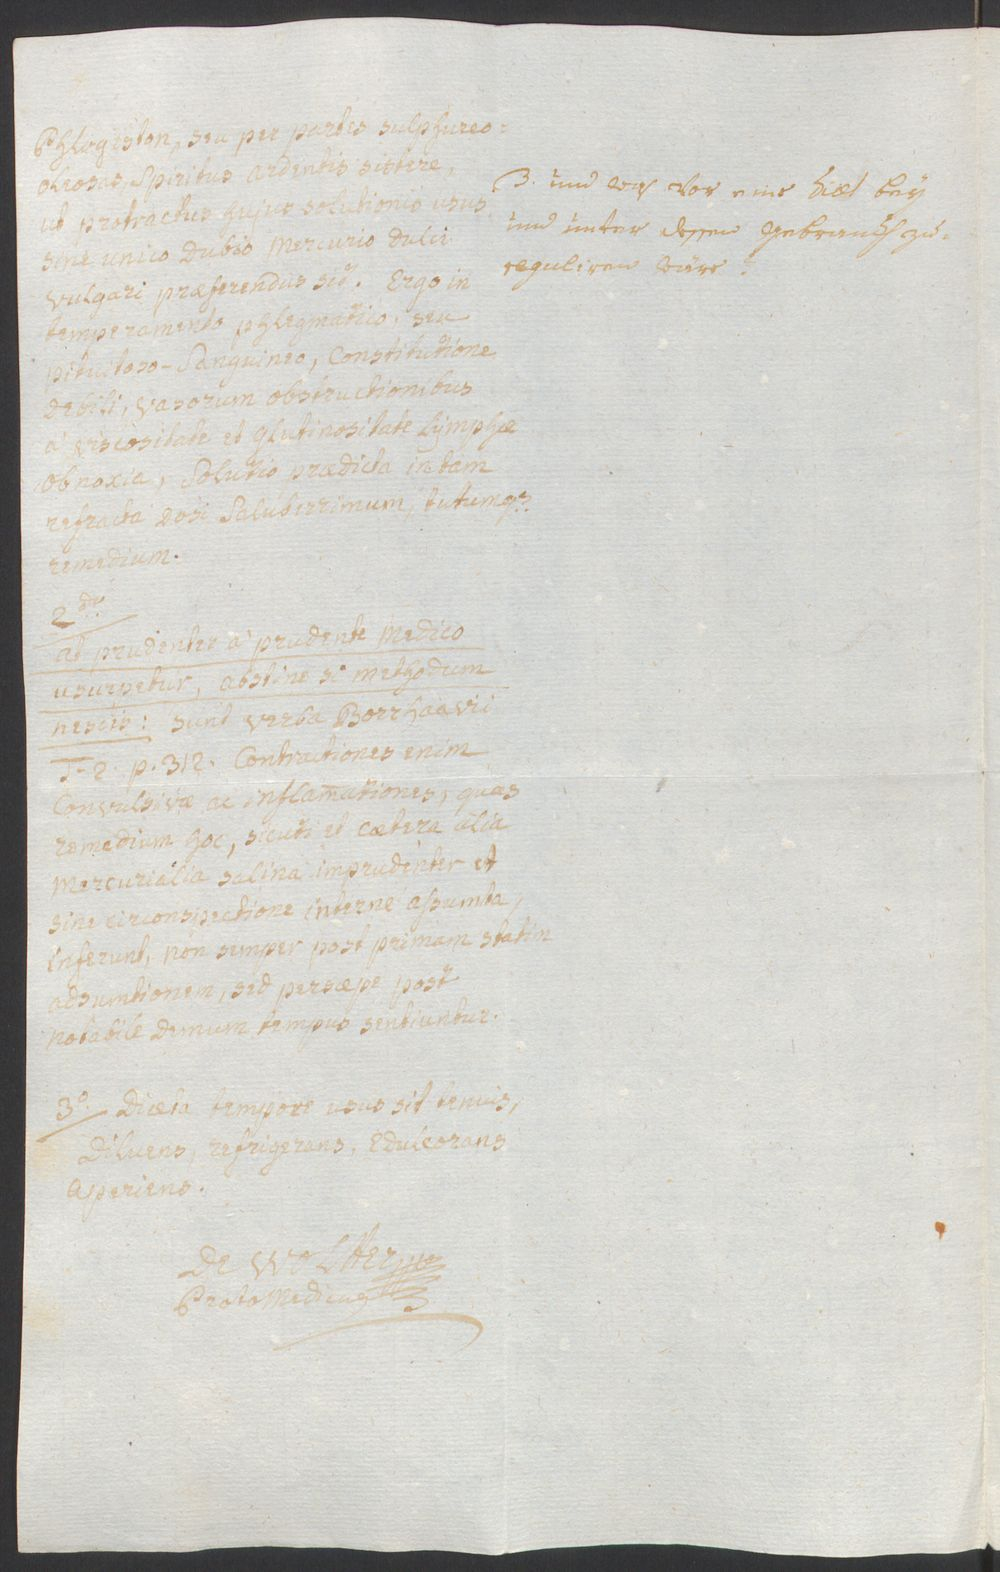 Phlogiston, seu per partes sulphureo-
oleosas, Spiritus ardentis sistere,
ut protractus hujus solutionis usus
sine unico dubio Mercurio dulci
vulgari præferendus sit. Ergo in
temperamento phlegmatico, seu
pituitoso-Sanguineo, Constitutione
debili, vasorum obstructionibus
a viscositate et glutinositate Lÿmphæ
obnoxia, Solutio prædicta in tam
refracta dosi Saluberrimum, tutumq3
remedium.
2do
at prudenter a prudente Medico
usurpetur, abstine si methodum
nescis: sunt verba Borrhaavii
T-2. p. 312. Contractiones enim
Convulsivæ ac inflam̄ationes, quas
remedium hoc, sicuti et cætera alia
Mercurialia salina imprudenter et
sine circonspectione interne assumta,
inferunt, non semper post primam statim
adsumtionem, sed persæpe post
notabile demum tempus sentiuntur.
3o. Diæta tempore usus sit tenuis,
diluens, refrigerans, Edulcorans
aperiens.
De Wolther
ProtoMedicus
3. und was vor eine Diæt beÿ
und unter dessen gebrauch zu-
reguliren wäre?